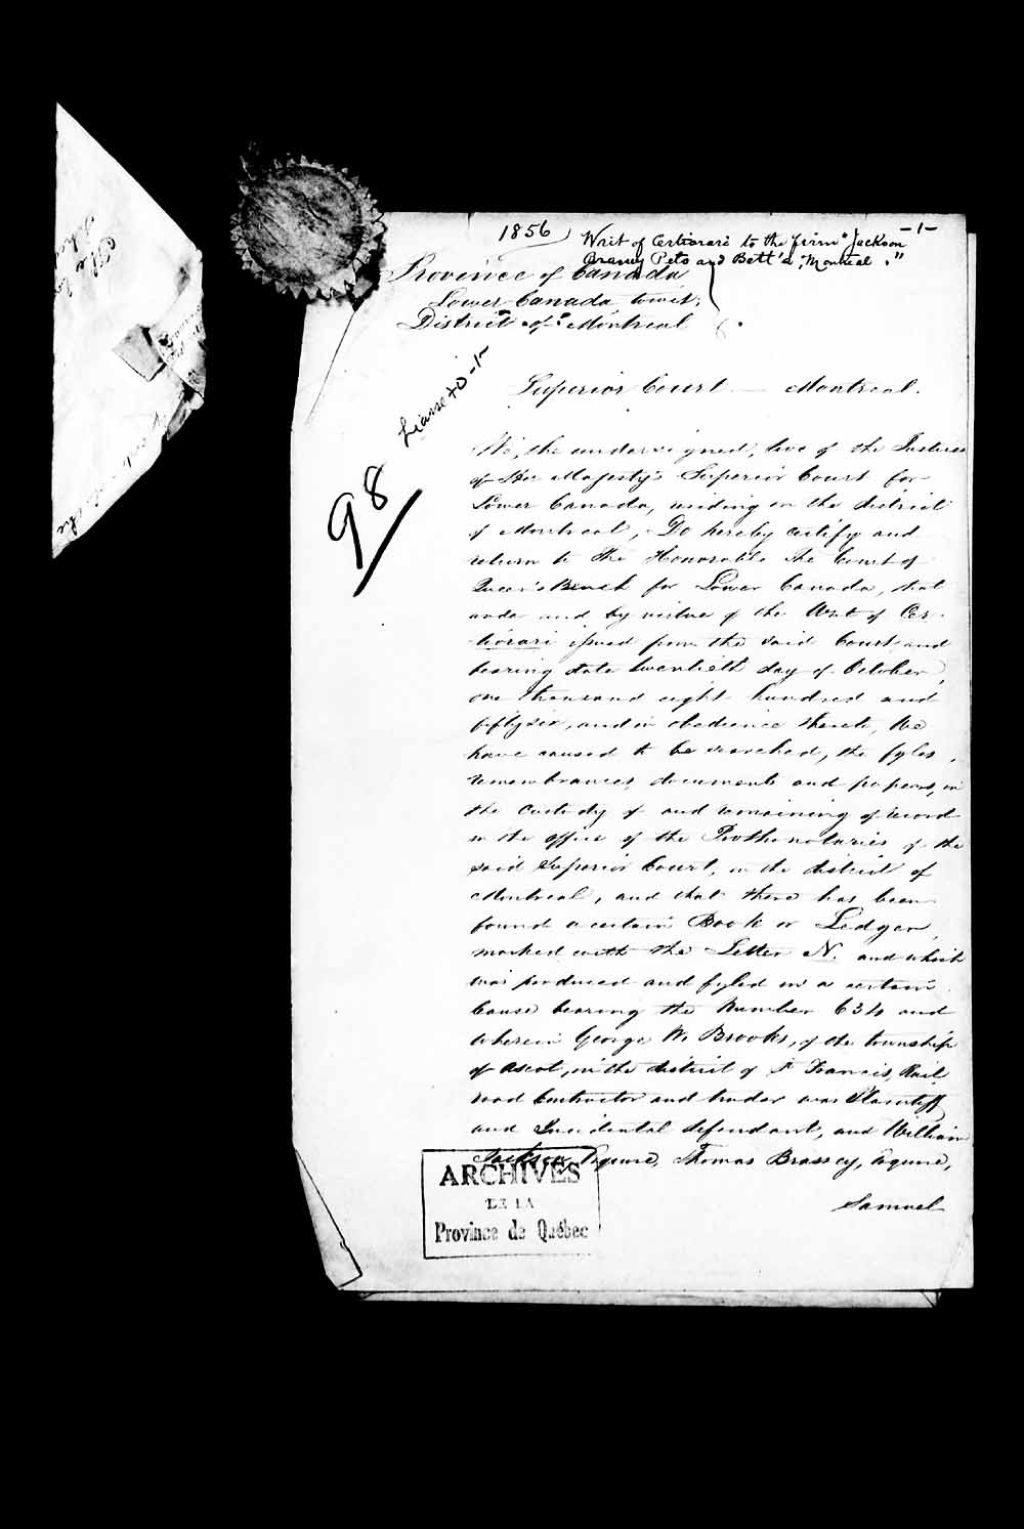 1856
-1-
Writ of Certiorari to the firm "Jackson
Peto and Bett's, Montreal."
Province of Canada
Lower Canada towit,
District of Montreal
Liasse
98
Superior Court — Montreal.
We, the undersigned, two of the Justices
of Her Majesty's Superior Court for
Lower Canada, residing in the district
of Montreal, Do hereby certify and
return to the Honorable the Court of
Queen's Bench for Lower Canada, that
under and by virtue of the Writ of Cer-
-tiorari issued from the said Court and
bearing date twentieth day of October,
one thousand eight hundred and
fiftysix, and in obedience thereto, We
have caused to be searched, the fyles,
remembrances, documents and papers, in
the custody of and remaining of record
in the office of the Prothonotaries of the
said Superior Court, in the district of
Montreal, and that there has been
found a certain Book or Ledger,
marked with the Letter N. and which
was produced and fyled in a certain
Cause bearing the Number 634 and
wherein George W. Brooks, of the township
of Ascot, in the district of St Francis, Rail
road Contractor and trader was Plaintiff
and Incidental defendant, and William
Jackson, Esquire, Thomas Brassey, Esquire,
Samuel
ARCHIVES
DE LA
Province de Québec